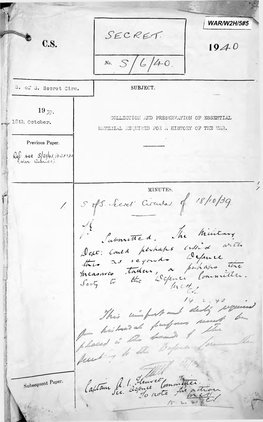 WAR/W2H/585
SECRET
C.S.
1940
No. S/6/40
S. of S. Secret Circ.
SUBJECT.
1939.
18th October.
COLLECTION AND PRESERVATION OF ESSENTIAL
MATERIAL REQUIRED FOR A HISTORY OF THE WAR.
Previous Paper.
MINUTES.
1 S of S. Secret Circular of 18/10/39
Submitted. The Military
Dept: could perhaps assist with
this as regards Defence
measures taken, or perhaps the
Secty to the Defence Committee.
14.2.40
This important duty required
for historical purposes must be
placed in the hands of the
to the Defence Committee
Captain A. I.
Sec. Defence Committee
To note for action
Subsequent Paper.